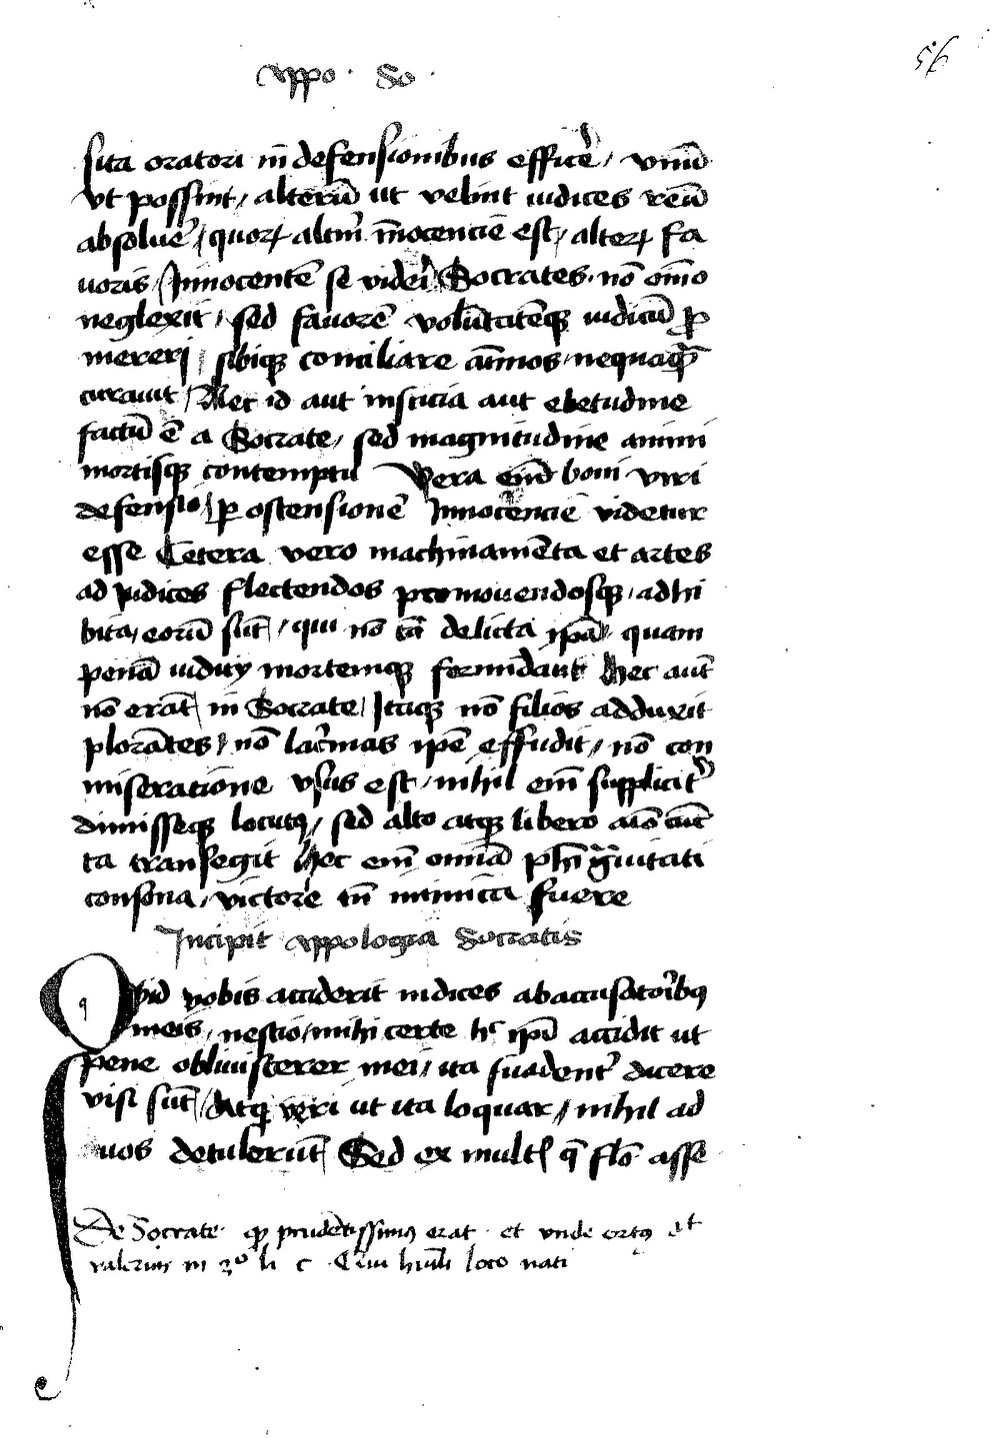 56
Appo. So.
sita oratori in̄ defensionibus efficẽ / vnū
vt possint / alterū ut velint iudices reū
absoluẽ / quorꝝ altm̃ in̄ocencie est / alterꝝ fa
uoris / Innocentē se videri Socrates nō om̄o
neglexit / sed fauorē volūtatēqꝫ iudicū ꝓ
mereri / sibiqꝫ conciliare aīmos nequaqͣꝫ
curauit / Nec id aut inscicia aut ebetudine
factū ē a Socrate / sed magnitudine animi
mortisqꝫ contemptu Vera enī boni viri
defensio / ꝑ ostensionē Innocencie videtur
esse Cetera vero machinamēta et artes
ad iudices flectendos ꝑmouendosqꝫ adhi
bita / eorū sūt / qui nō tā delicta ip̄a quam
penā iudicij mortemqꝫ formidant Hec aūt
nō erāt in Socrate / Itaqꝫ nō filios adduxit
plorātes / nō lac̃mas ip̄e effudit / nō con
miseratione vsus est / nihil em̄ supplicit̃
dimisseqꝫ locutꝰ / sed alto atqꝫ libero aīo cūc
ta transegit Hec em̄ omnia ph̄i gͣuitati
consona / victorie tn̄ inimica fuere
Incipit Appologia Socratis
Quid vobis acciderit iudices ab accusatoribꝰ
meis / nescio / mihi certe hͨ ip̄m accidit ut
pene obliuiscerer mei / ita suadent̃ dicere
visi sūt / Atqꝫ veri ut ita loquar / nihil ad
uos detulerūt Sed ex multꝭ q̄ fl̄o asse
De Socrate qꝫ prudētissimꝰ erat et vnde ortꝰ at
valerius in 3º li c Qui humili loco nati